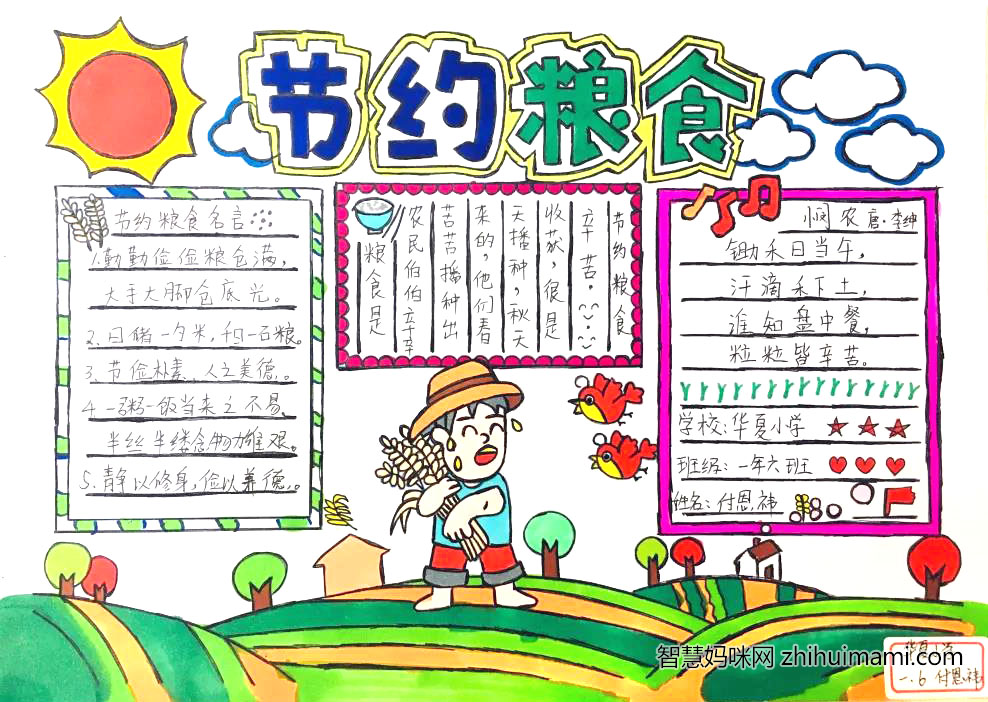 节约粮食
节约粮食名言
1.勤勤俭俭粮仓满，
大手大脚仓底光。
2.日储一夕米，一石粮。
3、节俭朴素，人之美德。
4 一粥一饭当来之不易、
半丝半缕念物力维艰。
5.静以修身，俭以养德。
粮食是
农民伯伯辛辛
苦苦播种出
来的，他们春
天播种，秋天
收获，很是
辛苦。
节约粮食
悯农 唐·李绅
锄禾日当午，
汗滴禾下土，
谁知盘中餐，
粒粒皆辛苦。
学校：华夏小学
班级：一年六班
姓名：付恩祎
智慧妈咪网 zhihuimami.com
一.6 付恩祎